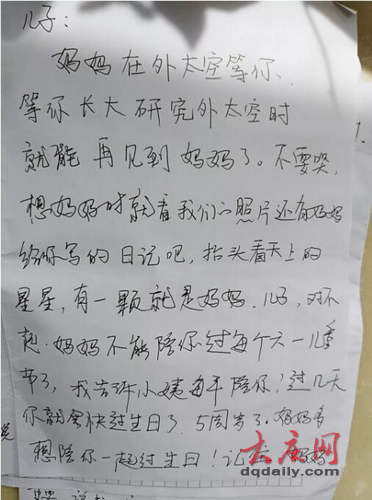 儿子:
妈妈在外太空等你、
等你长大研究外太空时
就能再见到妈妈了。不要哭,
想妈妈时就看我们的照片还有妈妈
给你写的日记吧,抬头看天上的
星星,有一颗就是妈妈.儿子,对不
起.妈妈不能陪你过每个六一儿童
节了,我告诉小姨每年陪你!过几天
你就会快过生日了.5周岁了.妈妈多
想陪你一起过生日!记 妈妈
大庆网
dqdaily.com